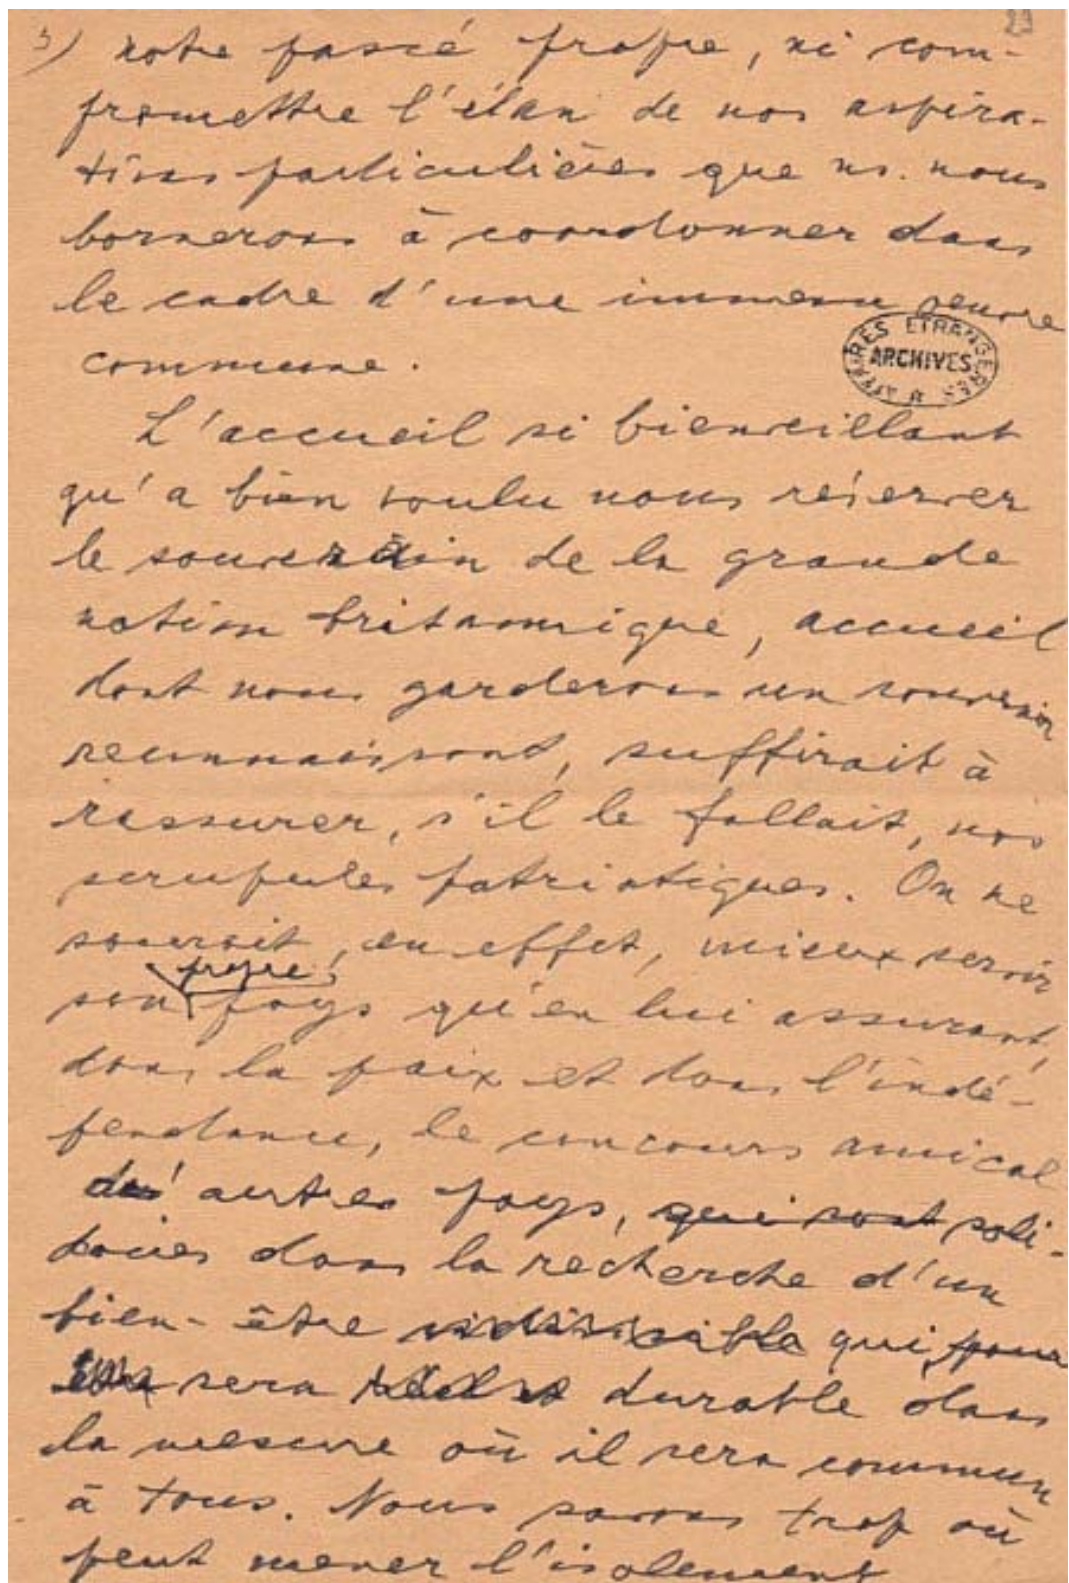 3) notre passé propre, ni com-
promettre l'élan de nos aspira-
tions particulières que ns. nous
bornerons à coordonner dans
le cadre d'une immense œuvre
commune.
AFFAIRES ETRANGERES
ARCHIVES
L'accueil si bienveillant
qu'a bien voulu nous réserver
le souverain de la grande
nation britannique, accueil
dont nous garderons un souvenir
reconnaissant, suffirait à
rassurer, s'il le fallait, nos
scrupules patriotiques. On ne
saurait, en effet, mieux servir
propre
son pays qu'en lui assurant,
dans la paix et dans l'indé-
pendance, le concours amical
des autres pays, qui sont soli-
daires dans la recherche d'un
bien-être indivisible qui pour
sera réel et durable dans
la mesure où il sera commun
à tous. Nous savons trop où
peut mener l'isolement